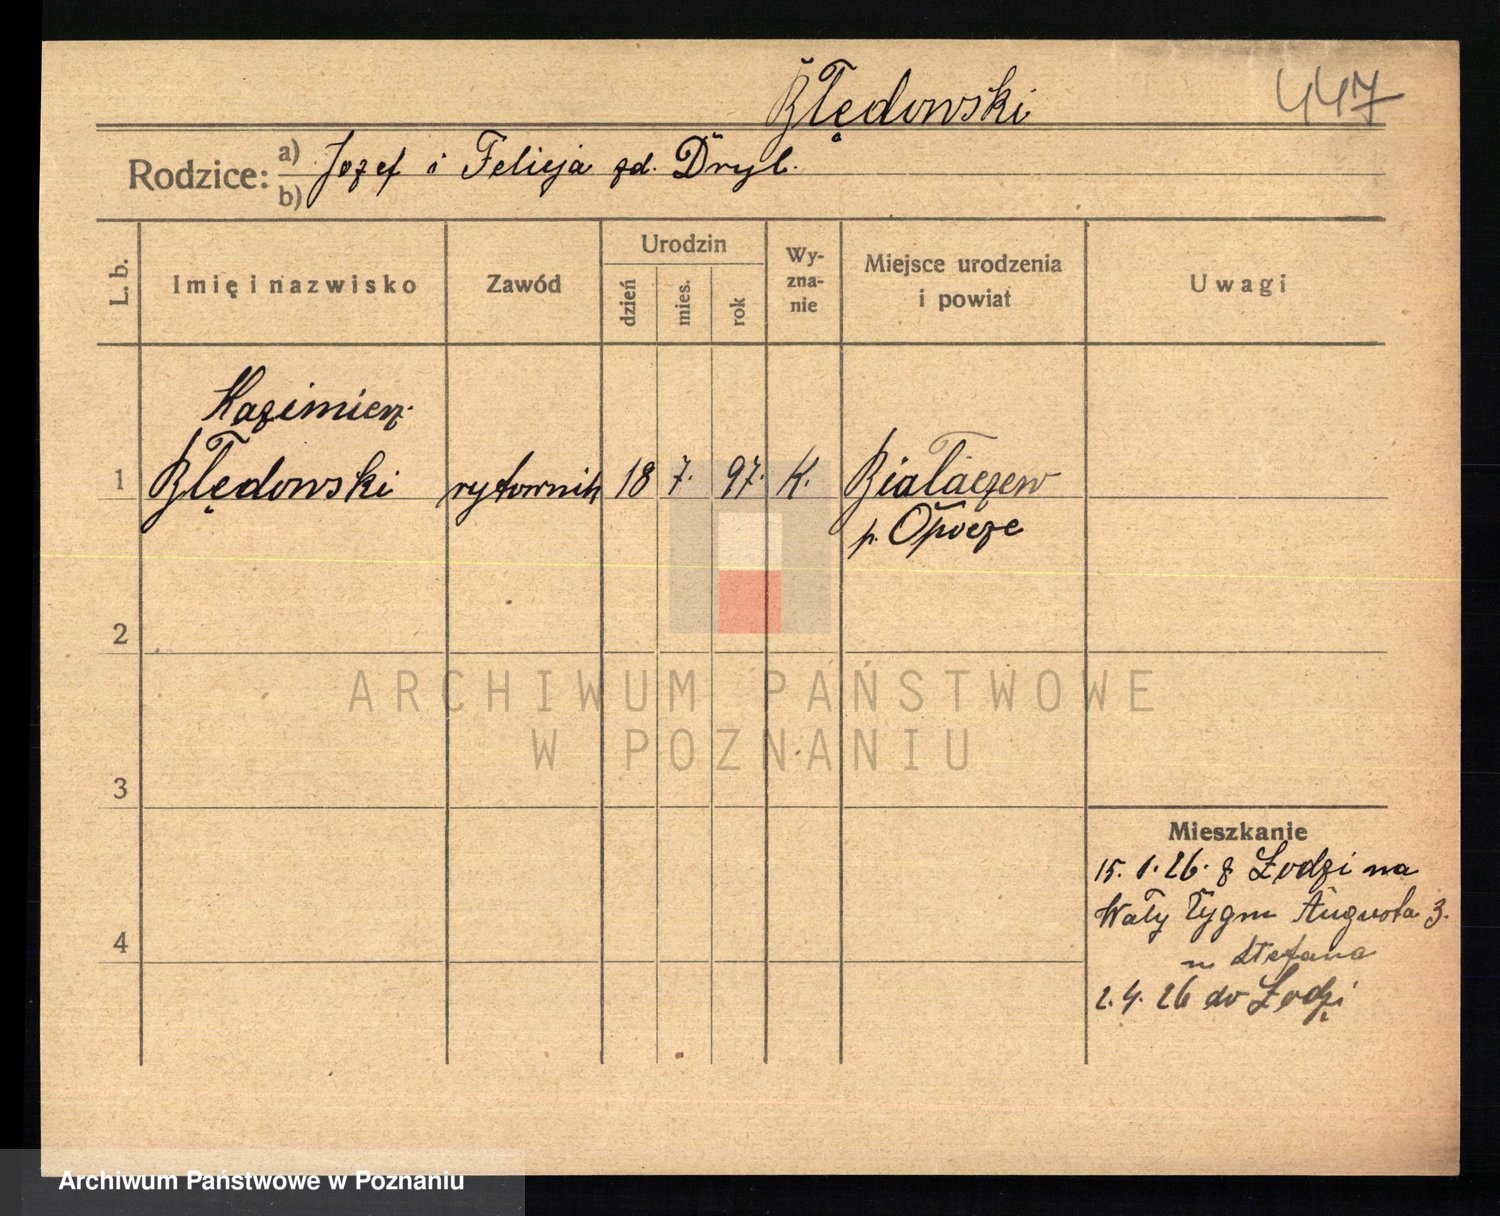 Błędowski
447
Rodzice: a) Jozef i Felicja zd. Dryl.
b)
L. b.
Imię i nazwisko
Zawód
Urodzin
dzień
mies.
rok
Wy-
zna-
nie
Miejsce urodzenia
i powiat
Uwagi
Kazimierz
1 Błędowski rytownik 18 7. 97. K. Białaczew
p. Opocze
2
ARCHIWUM PAŃSTWOWE
W POZNANIU
3
Mieszkanie
15. 1. 26. z Łodzi na
Wały Zygm Augusta 3.
4
u Stefana
2. 4. 26 do Łodzi
Archiwum Państwowe w Poznaniu